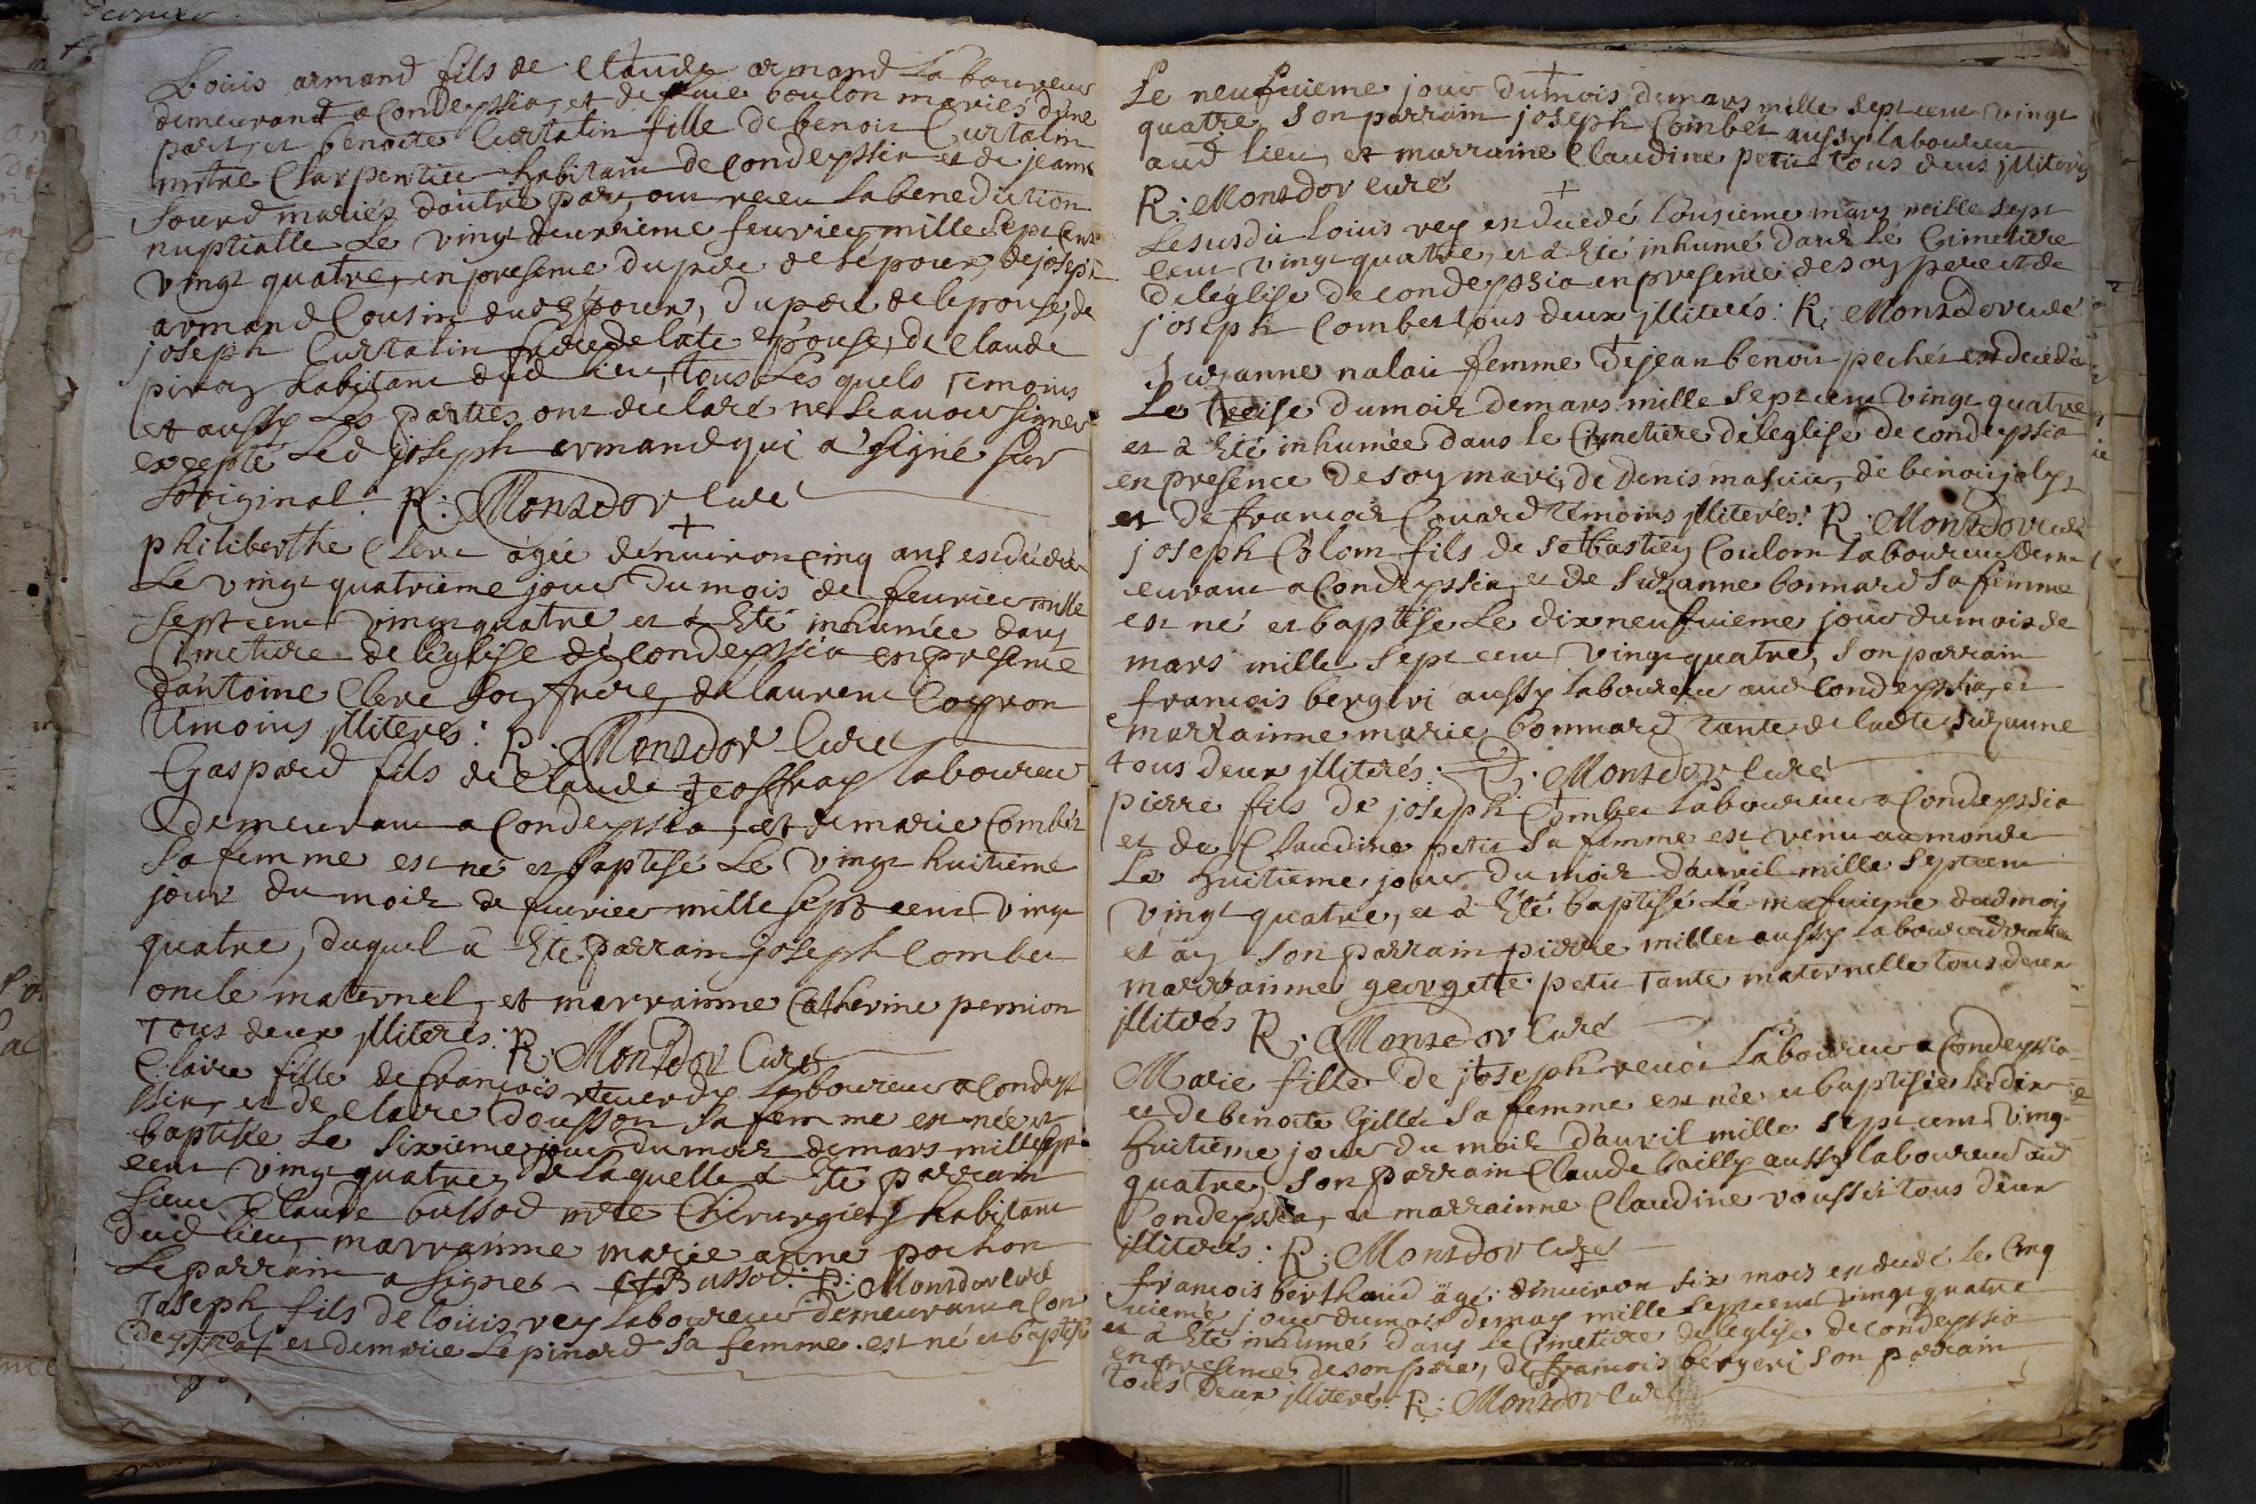 Louis armand fils de Claude armand Laboureur
demeurant a Condeyssia, et de boulon mariés d'une
part, et benoite Curtalin fille de benoit Curtalin
mtre Charpentier habitant de condeyssia et de jeanne
Sourd mariés d'autre part, ont receu la benediction
nuptialle Le vingt deuxieme feurier mille sept cent
vingt quatre, en presence du pere de l'époux, de joseph
armand Cousin dud époux, du pere de l'epouse, de
joseph Curtalin frere de late epouse, de Claude
habitant dud Lieu, tous Les quels temoins
et aussy Les parties ont déclaré ne sçauoir signer
excepté Led joseph armand qui a signé sur
L'original. R: Montdor Curé
philiberthe Clerc âgée d'enuiron cinq ans est decedée
Le vingt quatrieme jour du mois de feurier mille
sept cent vingt quatre et à Eté inhumée dans
Cimetiere de l'église de condeyssia en presence
d'antoine Clerc son frere, de laurent Coyron
temoins jlliterés: R: Montdor Curé
Gaspard fils de Claude Jeoffray laboureur
demeurant a Condeyssia, et de marie Combet
Sa femme est né et baptisé Le vingt huitieme
jour du mois de feurier mille sept cent vingt
quatre, duquel à Eté parrain joseph Combet
oncle maternel, et marrainne Catherine pernion
Tous deux jlliterés: R: Montdor Curé
Claire fille de françois reuerdy Laboureur a Condeys
ssia, et de Claire Dousson sa femme est née et
baptisée Le sixieme jour du mois de mars mille sept
cent vingt quatre, de laquelle à Eté parrain
sieur Claude bussod mtre Chirurgien habitant
dud lieu, marrainne marie anne pochon
Le parrain a signé Bussod. R: Montdor Curé
Joseph fils de louis rey laboureur demeurant a Con
deyssia, et de marie Lépinard sa femme est né et baptisé
Le neufuieme jour du mois de mars mille sept cent vingt
quatre son parrain joseph Combet aussy laboureur
aud lieu, et marraine Claudine petit tous deux jlliterés
R: Montdor Curé
Le susdit loüis rey est decedé L'onsieme mars mille sept
cent vingt quatre, et à Eté inhumé dans Le Cimetiere
de l'église de condeyssia en presence de son pere et de
joseph Combet tous deux jlliterés: R: Montdor curé
Suzanne nalai femme de jean benoit pechet est decedée
Le treise du mois de mars mille sept cent vingt quatre
et à Eté inhumée dans le Cimetiere de leglise de condeyssia
en presence de son mari, de denis, de benoit joly,
et de francois Couard temoins jlliterés: R: Montdor curé
joseph Colom fils de sebastien Coulom Laboureur dem
eurant a Condeyssia, et de Suzanne bonnard sa femme
est né et baptisé Le dix neufuieme jour du mois de
mars mille sept cent vingt quatre, son parrain
francois bergeri aussy laboureur aud Condeyssia, et
marrainne marie bonnard tante de ladte suzanne
tous deux jlliterés: R: Montdor Curé
pierre fils de joseph Combet laboureur a Condeyssia
et de Claudine petit sa femme est venu au monde
Le huitieme jour du mois d'auril mille sept cent
vingt quatre, et à Eté baptisé Le neufuieme dud mois
et an son parrain pierre millet aussy laboureur
marrainne georgette petit Tante maternelle tous deux
jlliterés R: Montdor Curé
Marie fille de joseph Laboureur a Condeyssia
et de benoite Gillet sa femme est née et baptisée le dix
huitieme jour du mois d'auril mille sept cent vingt
quatre, son parrain Claude bailly aussy laboureur aud
Condeyssia, et marrainne Claudine tous deux
jlliterés: R: Montdor Curé
françois berthaud âgé d'enuiron six mois est decedé Le Cinq
uieme jour du mois de may mille sept cent vingt quatre
et à Eté inhumé dans Le Cimetiere de leglise de condeyssia
en presence de son pere, de francois bergeri son parrain
tous deux jlliterés. R: Montdor Curé